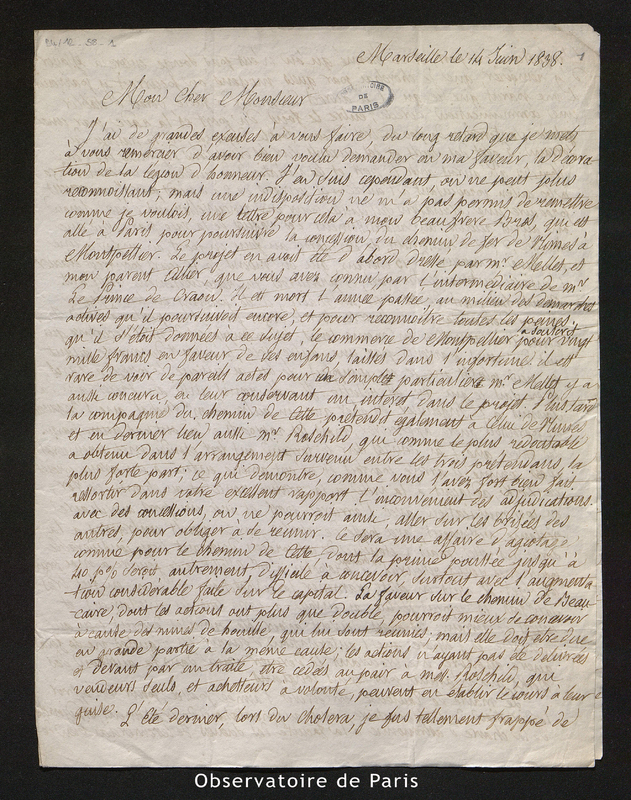 Marseille le 14 Juin 1838.
1
Mon cher Monsieur
DE
PARIS
J'ai de grandes excuses à vous faire, du long retard que je mets
à vous remercier d'avoir bien voulu demander en ma faveur, la décora
tion de la legion d'honneur. J'en suis cependant, on ne peut plus
reconnoissant; mais une indisposition ne m'a pas permis de remettre
comme je voulois, une lettre pour cela à mon beaufrere Bras, qui est
allé à Paris pour poursuivre la concession, du chemin de fer de Nimes à
Montpellier. Le projet en avoit été d'abord dressé par mr Mellet, et
mon parent Tillier, que vous avez connu par l'intermédiaire de mr
Le Prince de Craon. Il est mort l'année passée, au milieu des demarches
actives qu'il poursuivoit encore, et pour reconnoitre toutes les peines
qu'il s'étoit données à ce sujet le commerce de Montpellier a souscrit pour vingt
mille francs en faveur de ses enfans, laissés dans l'infortune. il est
rare de voir de pareils actes pour un simple particulier mr Mellet y a
aussi concouru, en leur conservant un interet dans le projet. Plus tard
la compagnie du chemin de Cette prétendit également à celui de Nimes
et en dernier lieu aussi mr Roschild, qui comme le plus redoutable
a obtenu dans l'arrangement survenu entre les trois prétendans, la
plus forte part; ce qui démontre, comme vous l'avez fort bien fait
ressortir dans votre excellent rapport l'inconvenient des adjudications.
avec des concessions, on ne pourroit ainsi, aller sur les brisées des
autres, pour obliger à se reunir. Ce sera une affaire d'agiotage
comme pour le chemin de Cette dont la prime poussée jusqu'à
40 p% seroit autrement, difficile à concevoir surtout avec l'augmenta
tion considerable faite sur le capital. La faveur sur le chemin de Beau
caire, dont les actions ont plus que doublé, pourroit mieux se concevoir
à cause des mines de houille, qui lui sont reunies; mais elle doit etre due
en grande partie à la même cause; les actions n'ayant pas été delivrées
et devant par un traité, etre cedées au pair à mrs Roschild, qui
vendeurs seuls, et acheteurs à volonté, peuvent en établir le cours à leur
guise.
L'Eté dernier, lors du cholera, je fus tellement frappé de
Observatoire de Paris